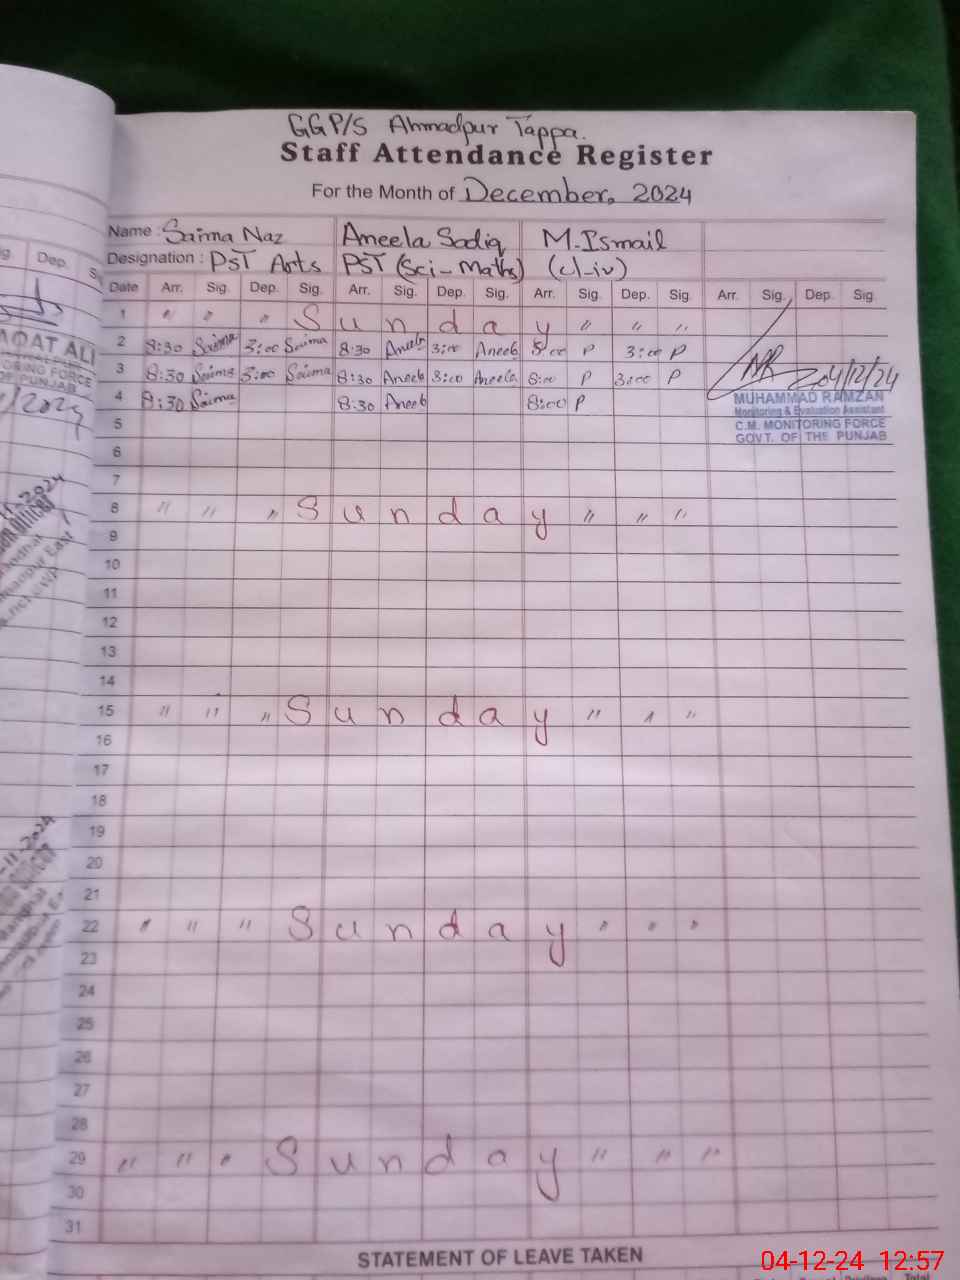 GGP/S Ahmadpur Tappa.
Staff Attendance Register
For the Month of December, 2024
Name : Saima Naz Aneela Sadiq M.Ismail
Designation : PST Arts PST (Sci-Maths) (cl-iv)
Date Arr. Sig. Dep. Sig. Arr. Sig. Dep. Sig. Arr. Sig. Dep. Sig. Arr. Sig. Dep. Sig.
1 " " " Sunday " " "
2 8:30 Saima 3:00 Saima 8:30 Aneela 3:00 Aneela 8:00 P 3:00 P
3 8:30 Saima 3:00 Saima 8:30 Aneela 3:00 Aneela 8:00 P 3:00 P
04/12/24
4 8:30 Saima 8:30 Aneela 8:00 P
MUHAMMAD RAMZAN
Monitoring & Evaluation Assistant
C.M. MONITORING FORCE
GOVT. OF THE PUNJAB
5
6
7
8 " " " Sunday " " "
9
10
11
12
13
14
15 " " " Sunday " " "
16
17
18
19
20
21
22 " " " Sunday " " "
23
24
25
26
27
28
29 " " " Sunday " " "
30
31
STATEMENT OF LEAVE TAKEN
04-12-24 12:57
Dep.
AQAT ALI
ORING FORCE
OF PUNJAB